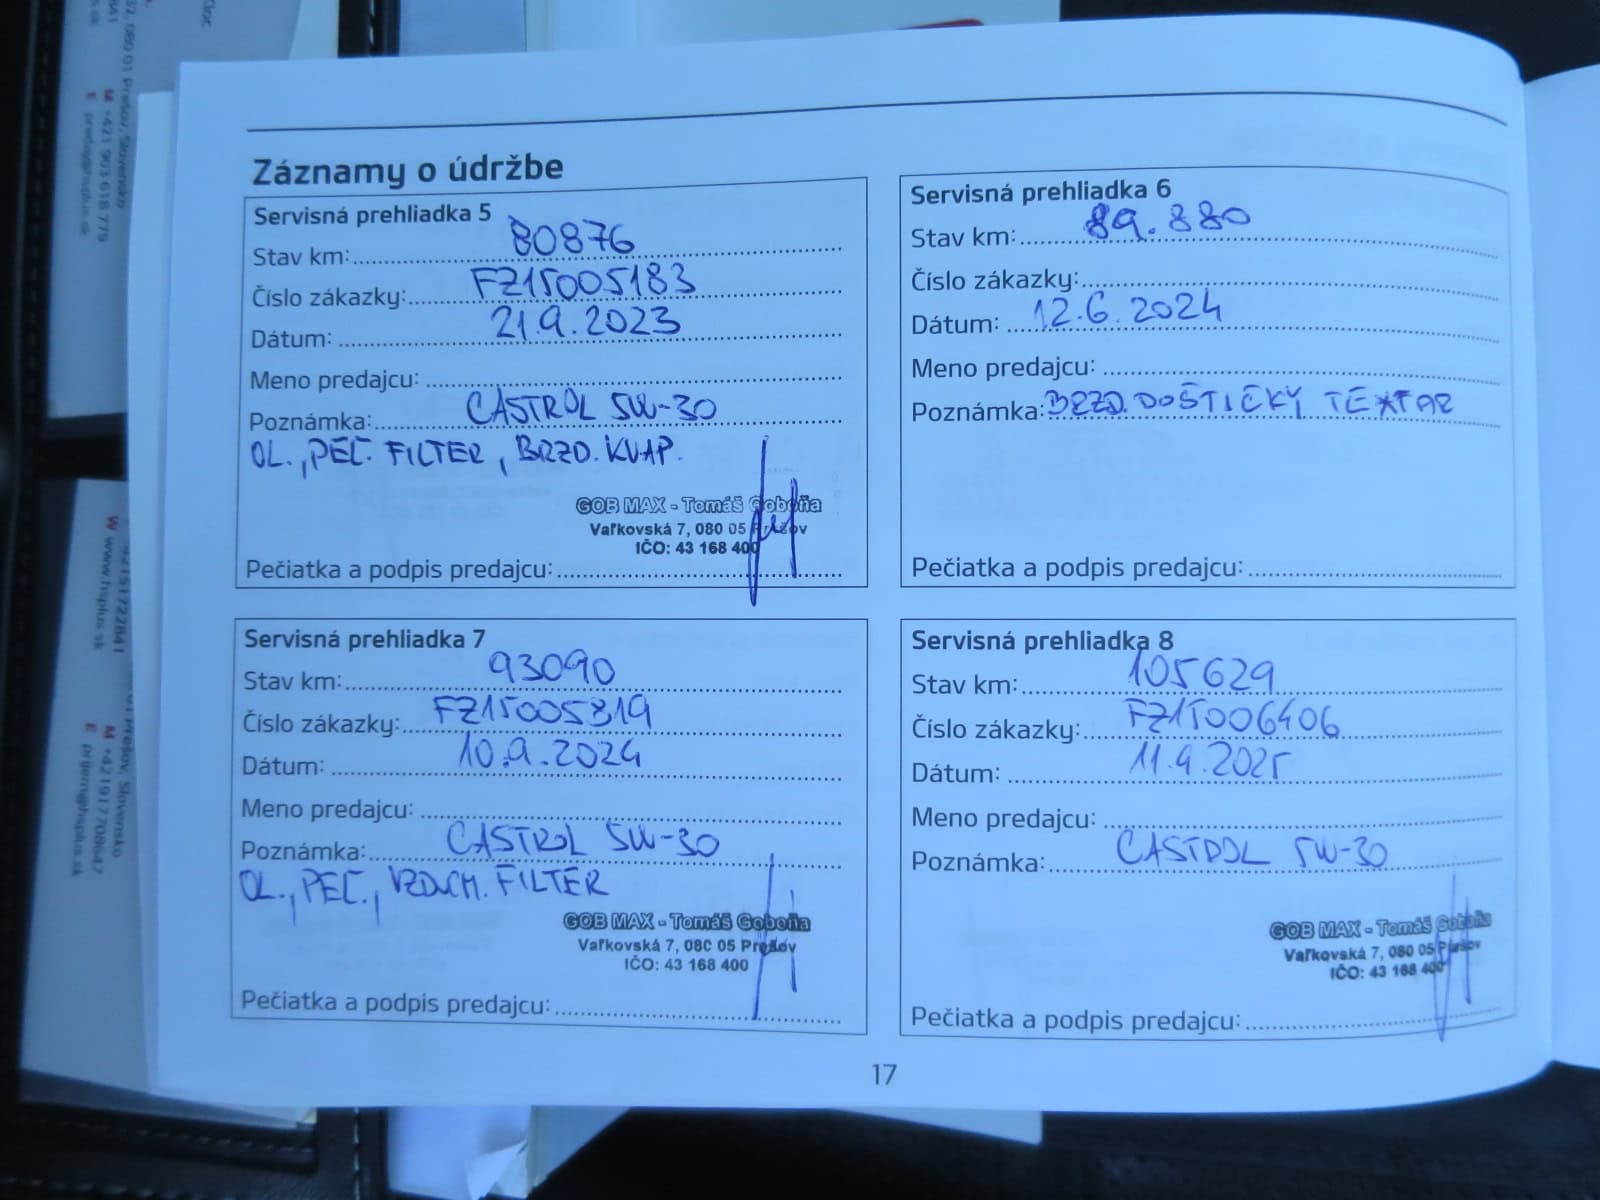 Záznamy o údržbe
Servisná prehliadka 5
Stav km: 80876
Číslo zákazky: FZ1T005183
Dátum: 21.9.2023
Meno predajcu:
Poznámka: CASTROL 5W-30
OL., PEĽ. FILTER, BRZD. KVAP.
GOB MAX - Tomáš Goboňa
Vaľkovská 7, 080 05 Prešov
IČO: 43 168 400
Pečiatka a podpis predajcu:
Servisná prehliadka 6
Stav km: 89.880
Číslo zákazky:
Dátum: 12.6.2024
Meno predajcu:
Poznámka: BRZD. DOŠTIČKY TEXTAR
Pečiatka a podpis predajcu:
Servisná prehliadka 7
Stav km: 93090
Číslo zákazky: FZ1T005819
Dátum: 10.9.2024
Meno predajcu:
Poznámka: CASTROL 5W-30
OL., PEĽ., VZDUCH. FILTER
GOB MAX - Tomáš Goboňa
Vaľkovská 7, 080 05 Prešov
IČO: 43 168 400
Pečiatka a podpis predajcu:
Servisná prehliadka 8
Stav km: 105629
Číslo zákazky: FZ1T006406
Dátum: 11.9.2025
Meno predajcu:
Poznámka: CASTROL 5W-30
GOB MAX - Tomáš Goboňa
Vaľkovská 7, 080 05 Prešov
IČO: 43 168 400
Pečiatka a podpis predajcu:
17
080 01 Prešov, Slovensko
M +421 903 618 779
E predaj@hsplus.sk
W www.hsplus.sk
Prešov, Slovensko
M +421917708647
E prijem@hsplus.sk